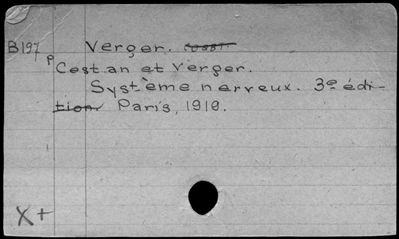 B197 Verger.
P
Cestan et Verger.
Système nerveux. 3e édi-
tion. Paris, 1919.
X+